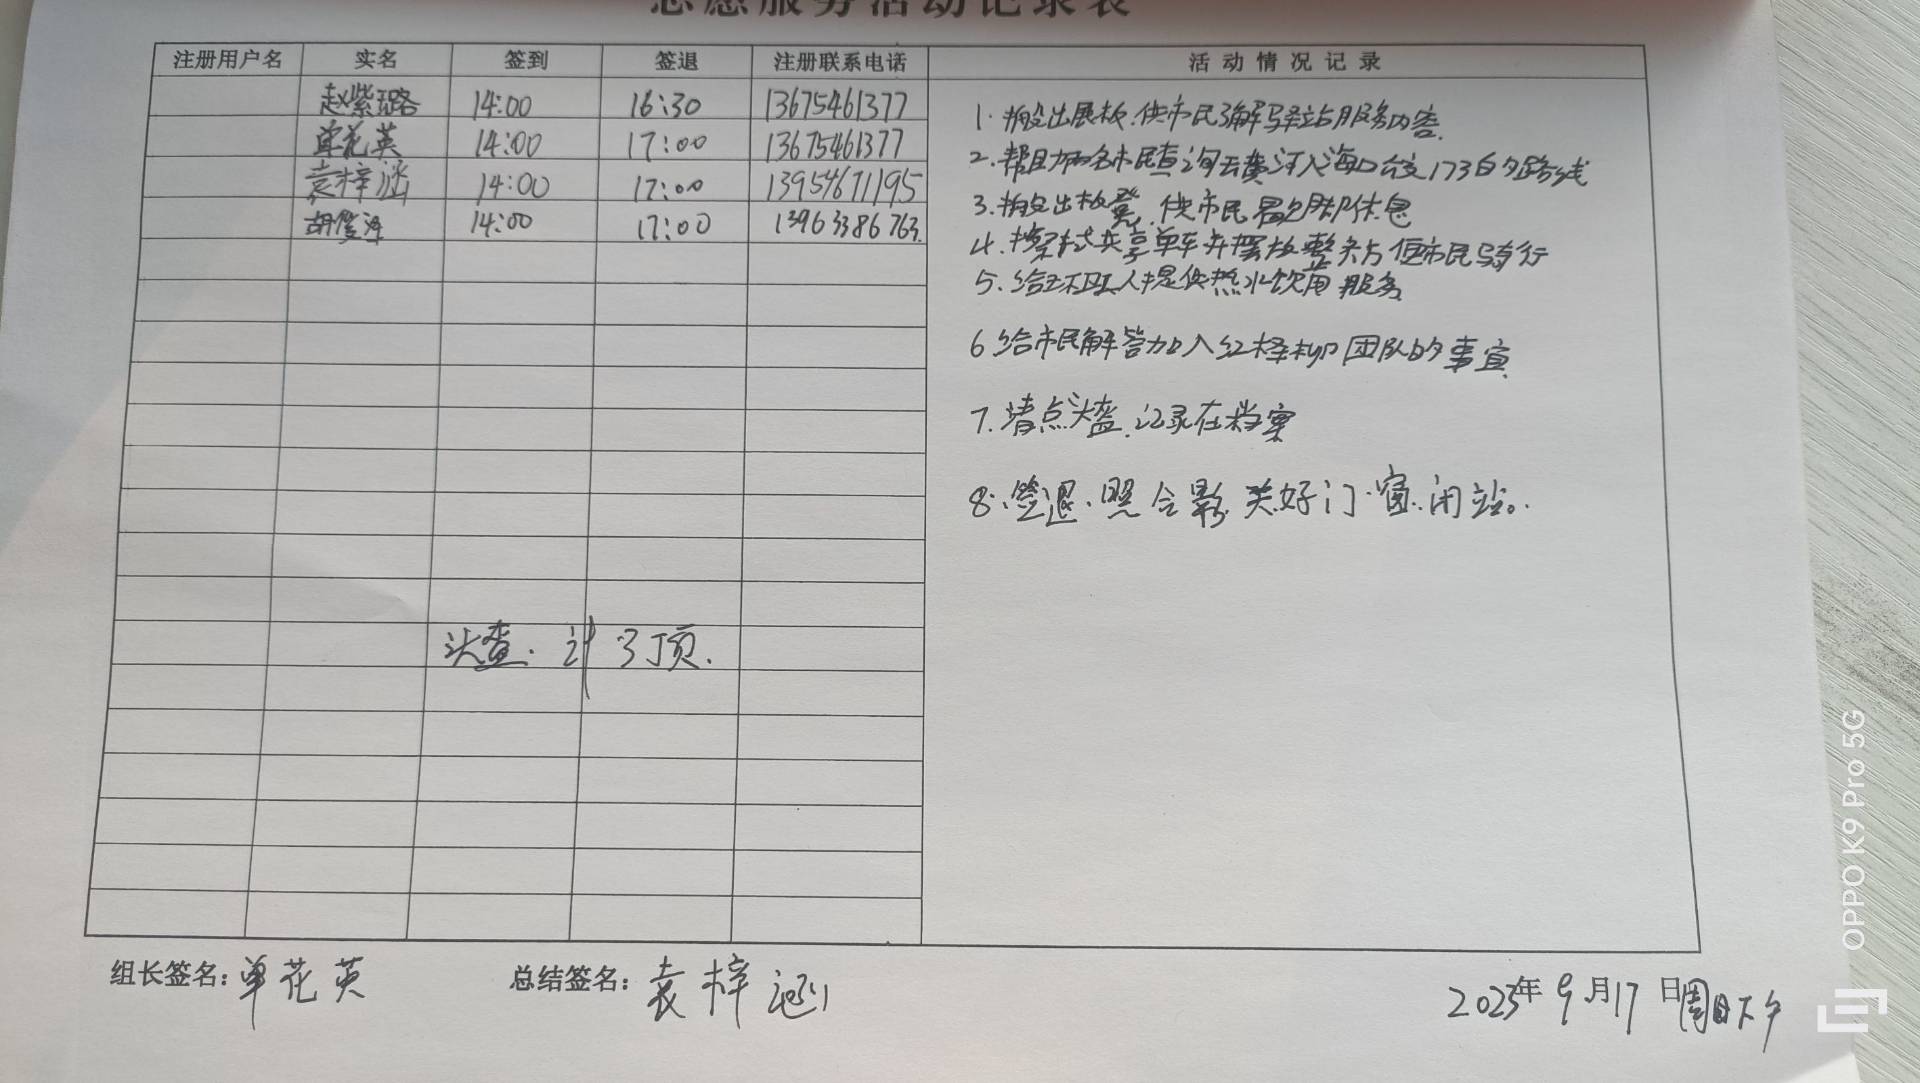 志愿服务活动记录表
注册用户名 实名 签到 签退 注册联系电话 活动情况记录
赵紫璐 14:00 16:30 13675461377
单花英 14:00 17:00 13675461377
袁梓涵 14:00 17:00 13954671195
胡俊泽 14:00 17:00 13963386763
1.搬出展板,供市民了解驿站服务内容.
2.帮助两名市民查询去黄河入海口公交173的路线
3.搬出板凳,供市民歇脚休息
4.擦拭共享单车并摆放整齐方便市民骑行
5.给环卫工人提供热水饮用服务
6 给市民解答加入红柽柳团队的事宜.
7.清点头盔,记录在档案
8.签退.照合影.关好门.窗.闭站。
头盔.计 3顶.
组长签名:单花英 总结签名:袁梓涵
2023年9月17日周日下午
OPPO K9 Pro 5G